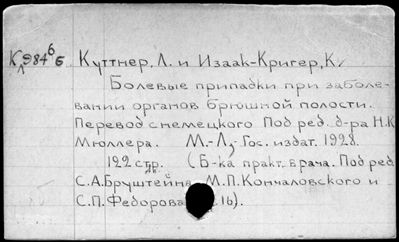 К 984 б Б Куттнер, Л. и Изаак-Кригер, К.
Болевые припадки при заболе-
вании органов брюшной полости.
Перевод с немецкого Под ред. д-ра Н.К
Мюллера. М.-Л, Гос. издат. 1928.
122 стр. (Б-ка практ. врача. Под ред
С.А. Бруштейна, М.П. Кончаловского и
С.П. Федорова 16).